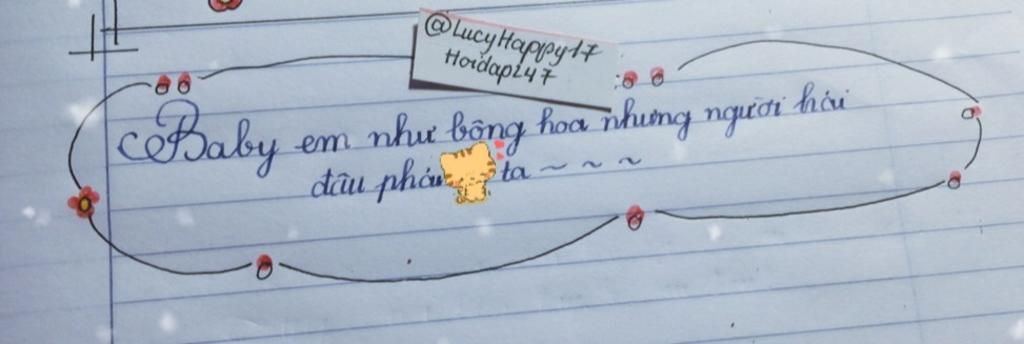 @LucyHappy17
Hoidap247
Baby em như bông hoa nhưng người hái
đâu phải ta ~ ~ ~